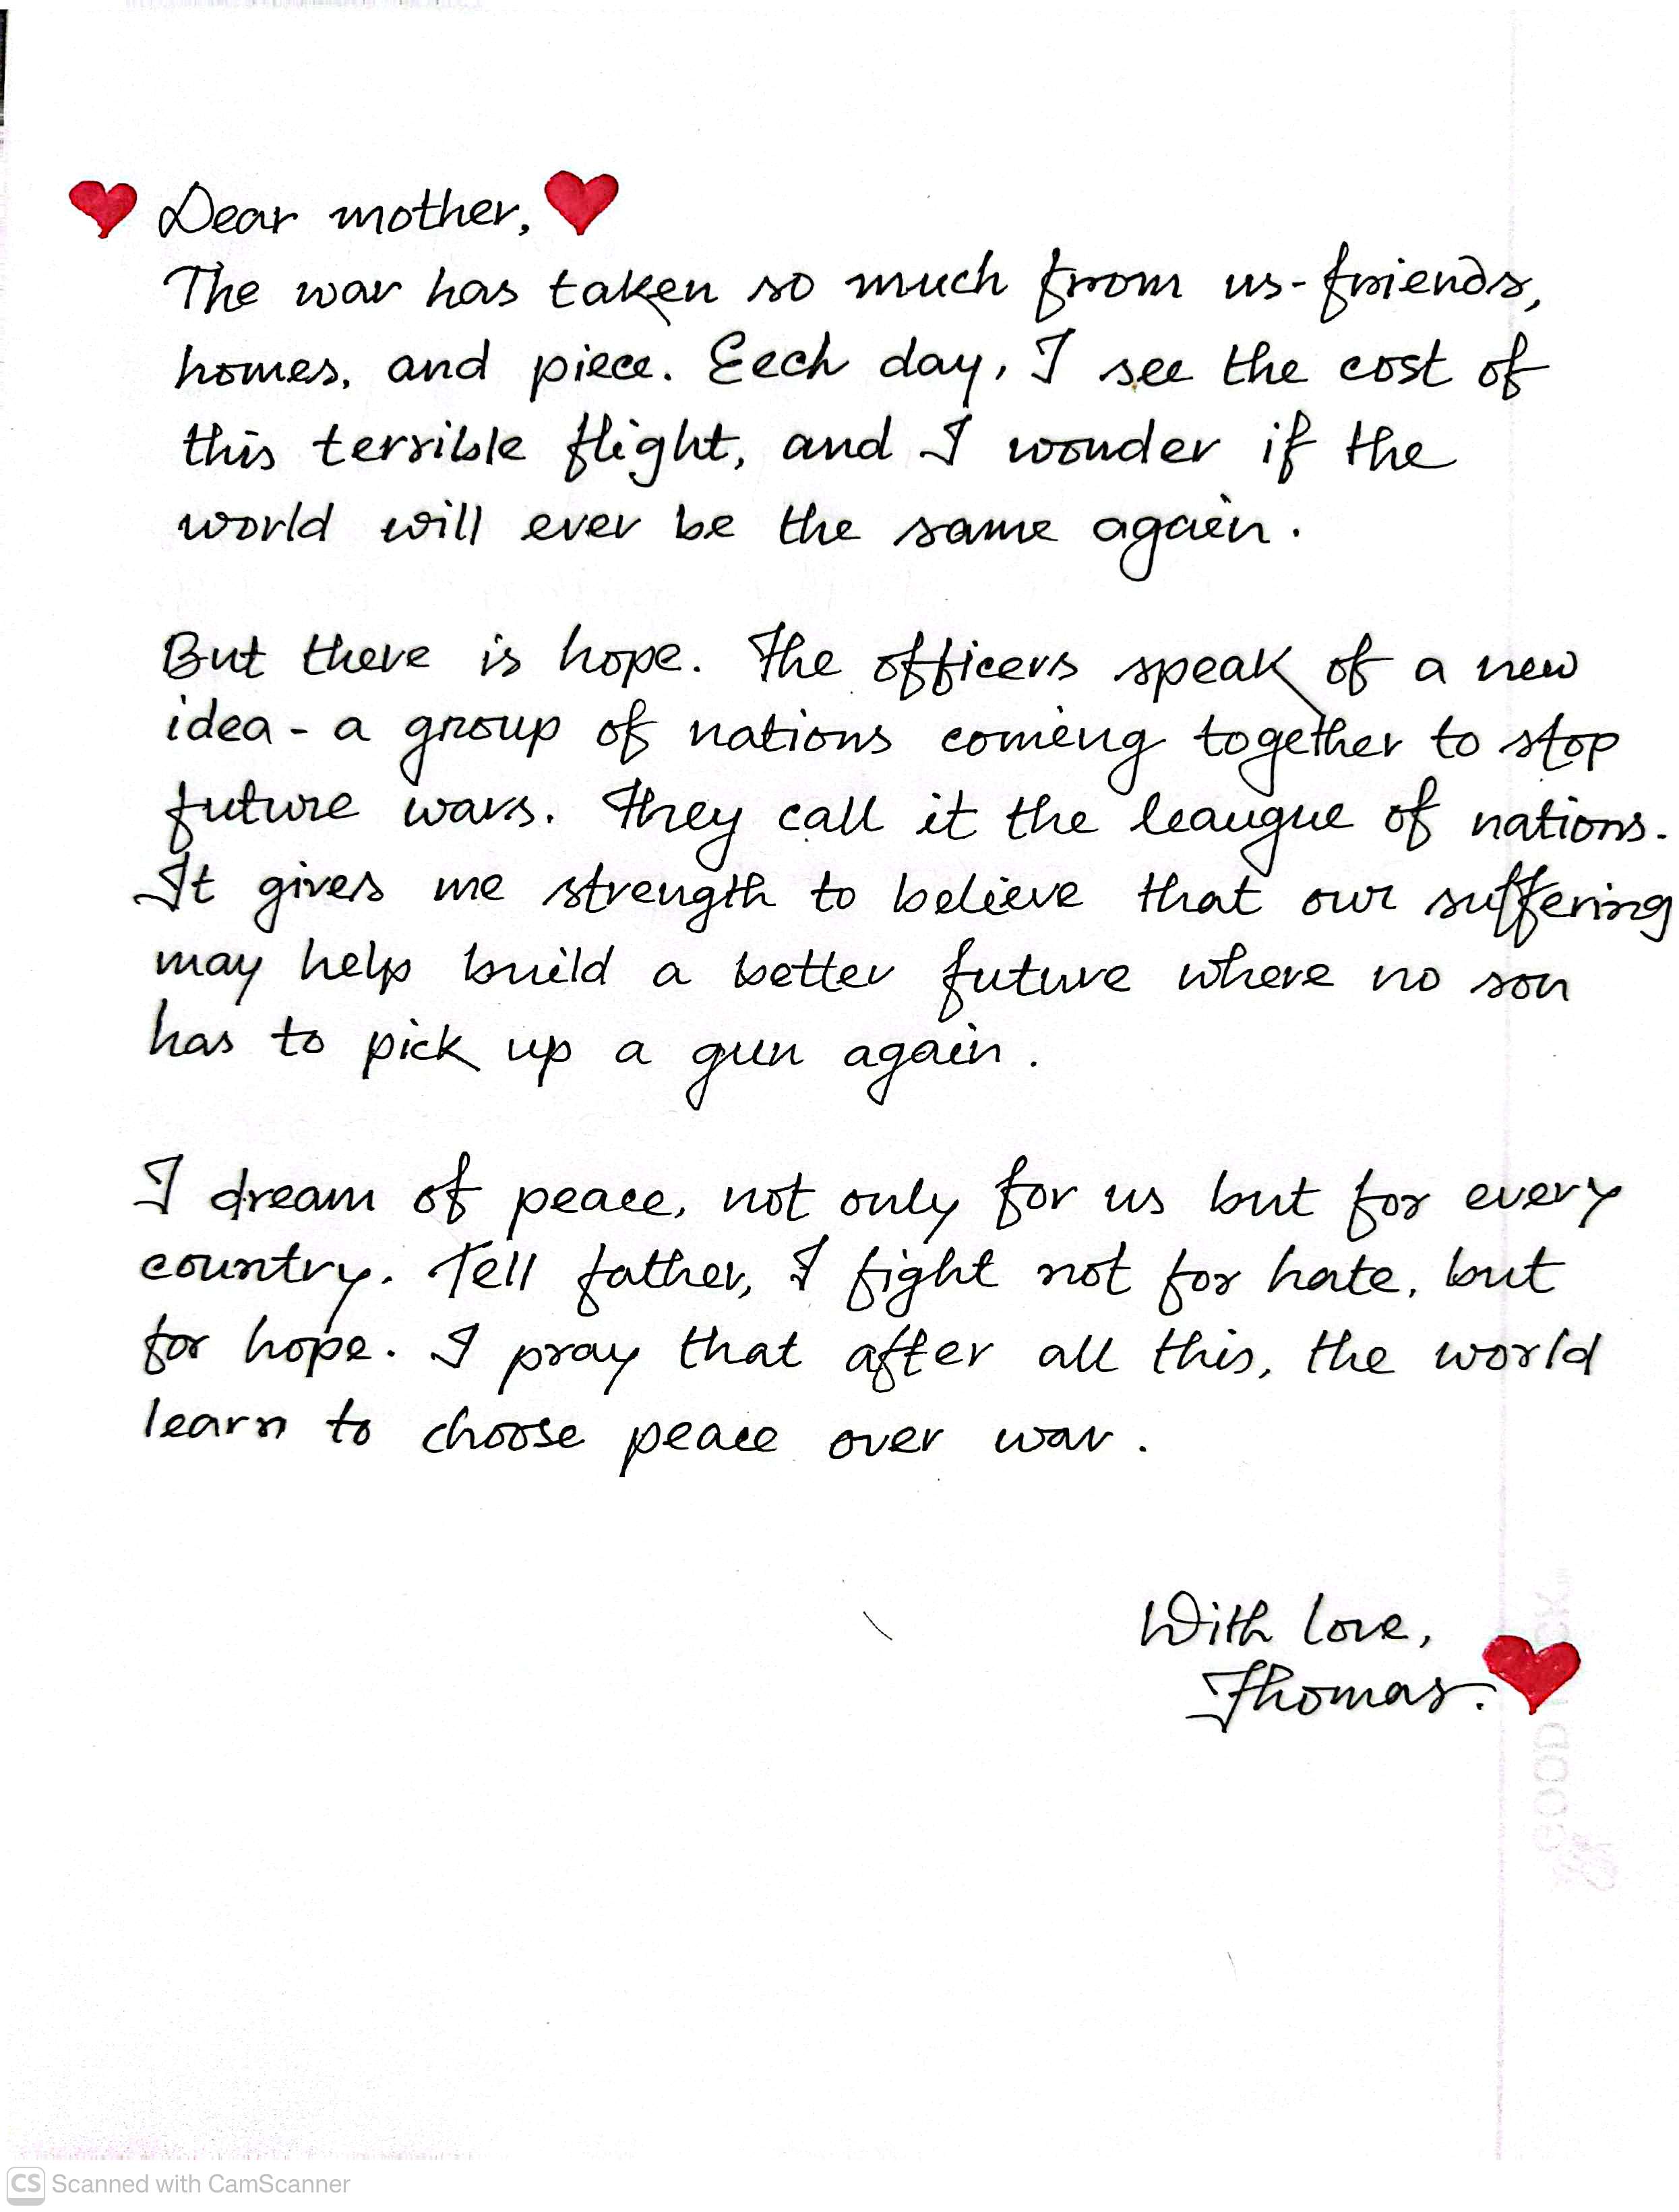 Dear mother,
The war has taken so much from us-friends,
homes, and piece. Eech day, I see the cost of
this terrible flight, and I wonder if the
world will ever be the same again.
But there is hope. The officers speak of a new
idea - a group of nations coming together to stop
future wars. They call it the leaugue of nations.
It gives me strength to believe that our suffering
may help build a better future where no son
has to pick up a gun again.
I dream of peace, not only for us but for every
country. Tell father, I fight not for hate, but
for hope. I pray that after all this, the world
learn to choose peace over war.
With love,
Thomas.
CS Scanned with CamScanner